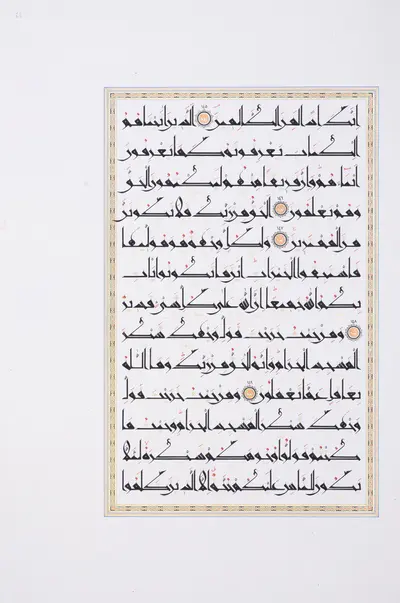 إنك إذا لمن الظالمين ١٤٥ الذين آتيناهم
الكتاب يعرفونه كما يعرفون
أبناءهم وإن فريقا منهم ليكتمون الحق
وهم يعلمون ١٤٦ الحق من ربك فلا تكونن
من الممترين ١٤٧ ولكل وجهة هو موليها
فاستبقوا الخيرات أين ما تكونوا يأت
بكم الله جميعا إن الله على كل شيء قدير
١٤٨ ومن حيث خرجت فول وجهك شطر
المسجد الحرام وإنه للحق من ربك وما الله
بغافل عما تعملون ١٤٩ ومن حيث خرجت فول
وجهك شطر المسجد الحرام وحيث ما
كنتم فولوا وجوهكم شطره لئلا
يكون للناس عليكم حجة إلا الذين ظلموا